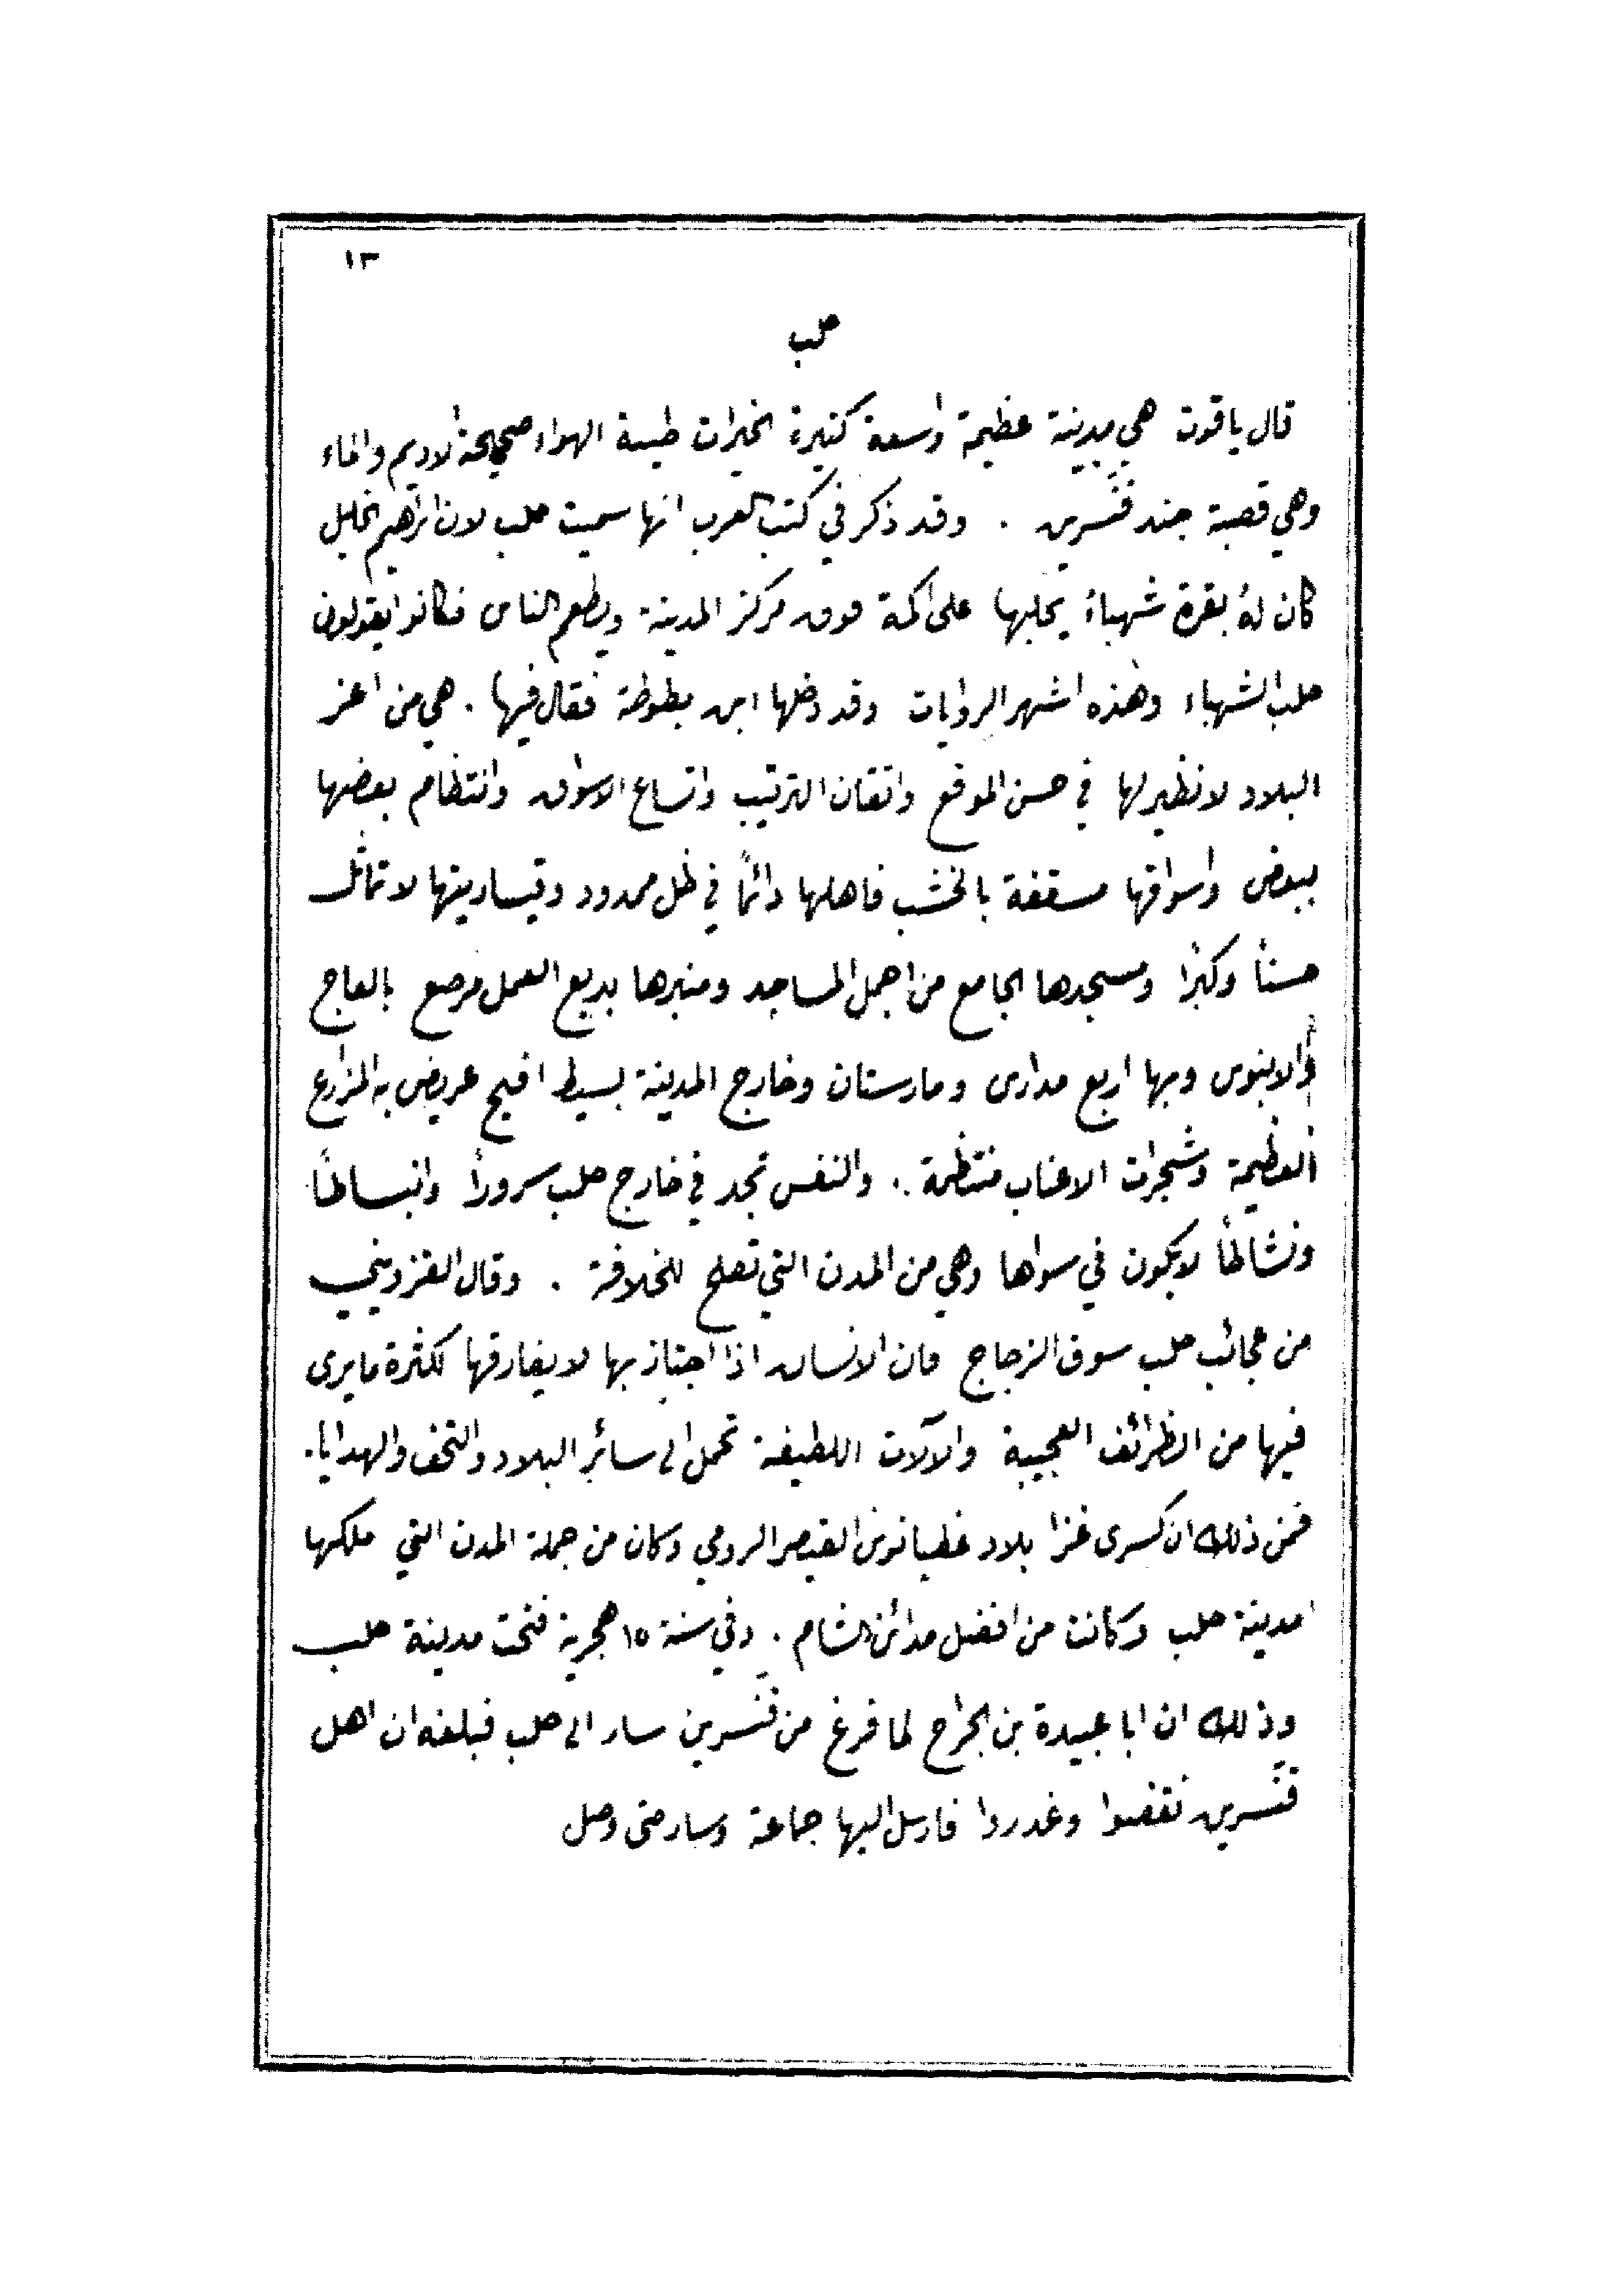 ١٣
حلب
قال ياقوت هي مدينة عظيمة واسعة كثيرة الخيرات طيبة الهواء صحيحة الاديم والماء
وهي قصبة جند قنّسرين . وقد ذكر في كتب العرب انها سميت حلب لان ابرٰهيم الخليل
كان لهُ بقرة شهباءُ يحلبها على اكمة فوق مركز المدينة ويطعم الناس فكانوا يقولون
حلب الشهباء وهذه اشهر الروايات وقد دخلها ابن بطوطة فقال فيها . هي من اعز
البلاد لا نظير لها في حسن الموقع واتقان الترتيب واتساع الاسواق وانتظام بعضها
ببعض واسواقها مسقفة بالخشب فاهلها دائماً في ظل ممدود وقيساريتها لا تماثل
حسناً وكبرًا ومسجدها الجامع من اجمل المساجد ومنبرها بديع العمل مرصع بالعاج
والابنوس وبها اربع مدارس ومارستان وخارج المدينة بسيط افيح عريض به المزارع
العظيمة وشجرات الاعناب منتظمة . والنفس تجد في خارج حلب سروراً وانبساطاً
ونشاطاً لا يكون في سواها وهي من المدن التي تصلح للخلافة . وقال القزويني
من عجائب حلب سوق الزجاج فان الانسان اذا اجتاز بها لا يفارقها لكثرة ما يرى
فيها من الظرائف العجيبة والآلات اللطيفة تحمل الى سائر البلاد والتحف والهدايا .
فمن ذلك ان كسرى غزا بلاد غطيانوس القيصر الرومي وكان من جملة المدن التي ملكها
مدينة حلب وكانت من افضل مدائن الشام . وفي سنة ١٥ هجرية فتحت مدينة حلب
وذلك ان ابا عبيدة بن الجراح لما فرغ من قنّسرين سار الى حلب فبلغه ان اهل
قنّسرين نقضوا وغدروا فارسل اليها جماعة وسار حتى وصل